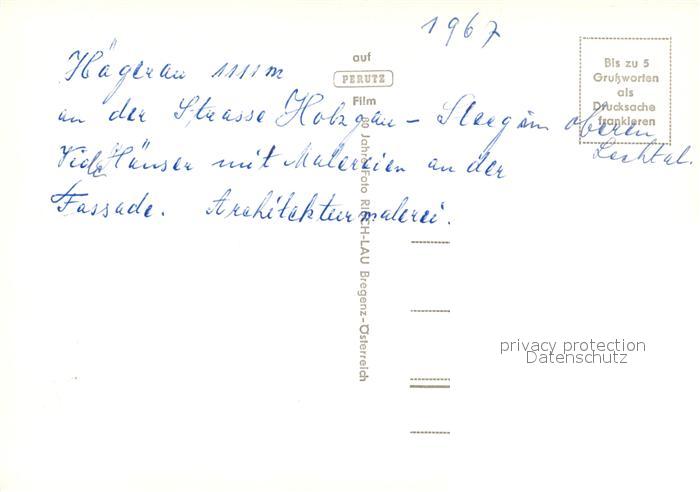 1967
Hägerau 1111m
an der Strasse Holzgau – Steeg im oberen
Lechtal.
Viele Häuser mit Malereien an der
Fassade. Architekturmalerei.
auf
PERUTZ
Film
80 Jahre Foto RISCH-LAU Bregenz-Österreich
Bis zu 5
Grußworten
als
Drucksache
frankieren
privacy protection
Datenschutz